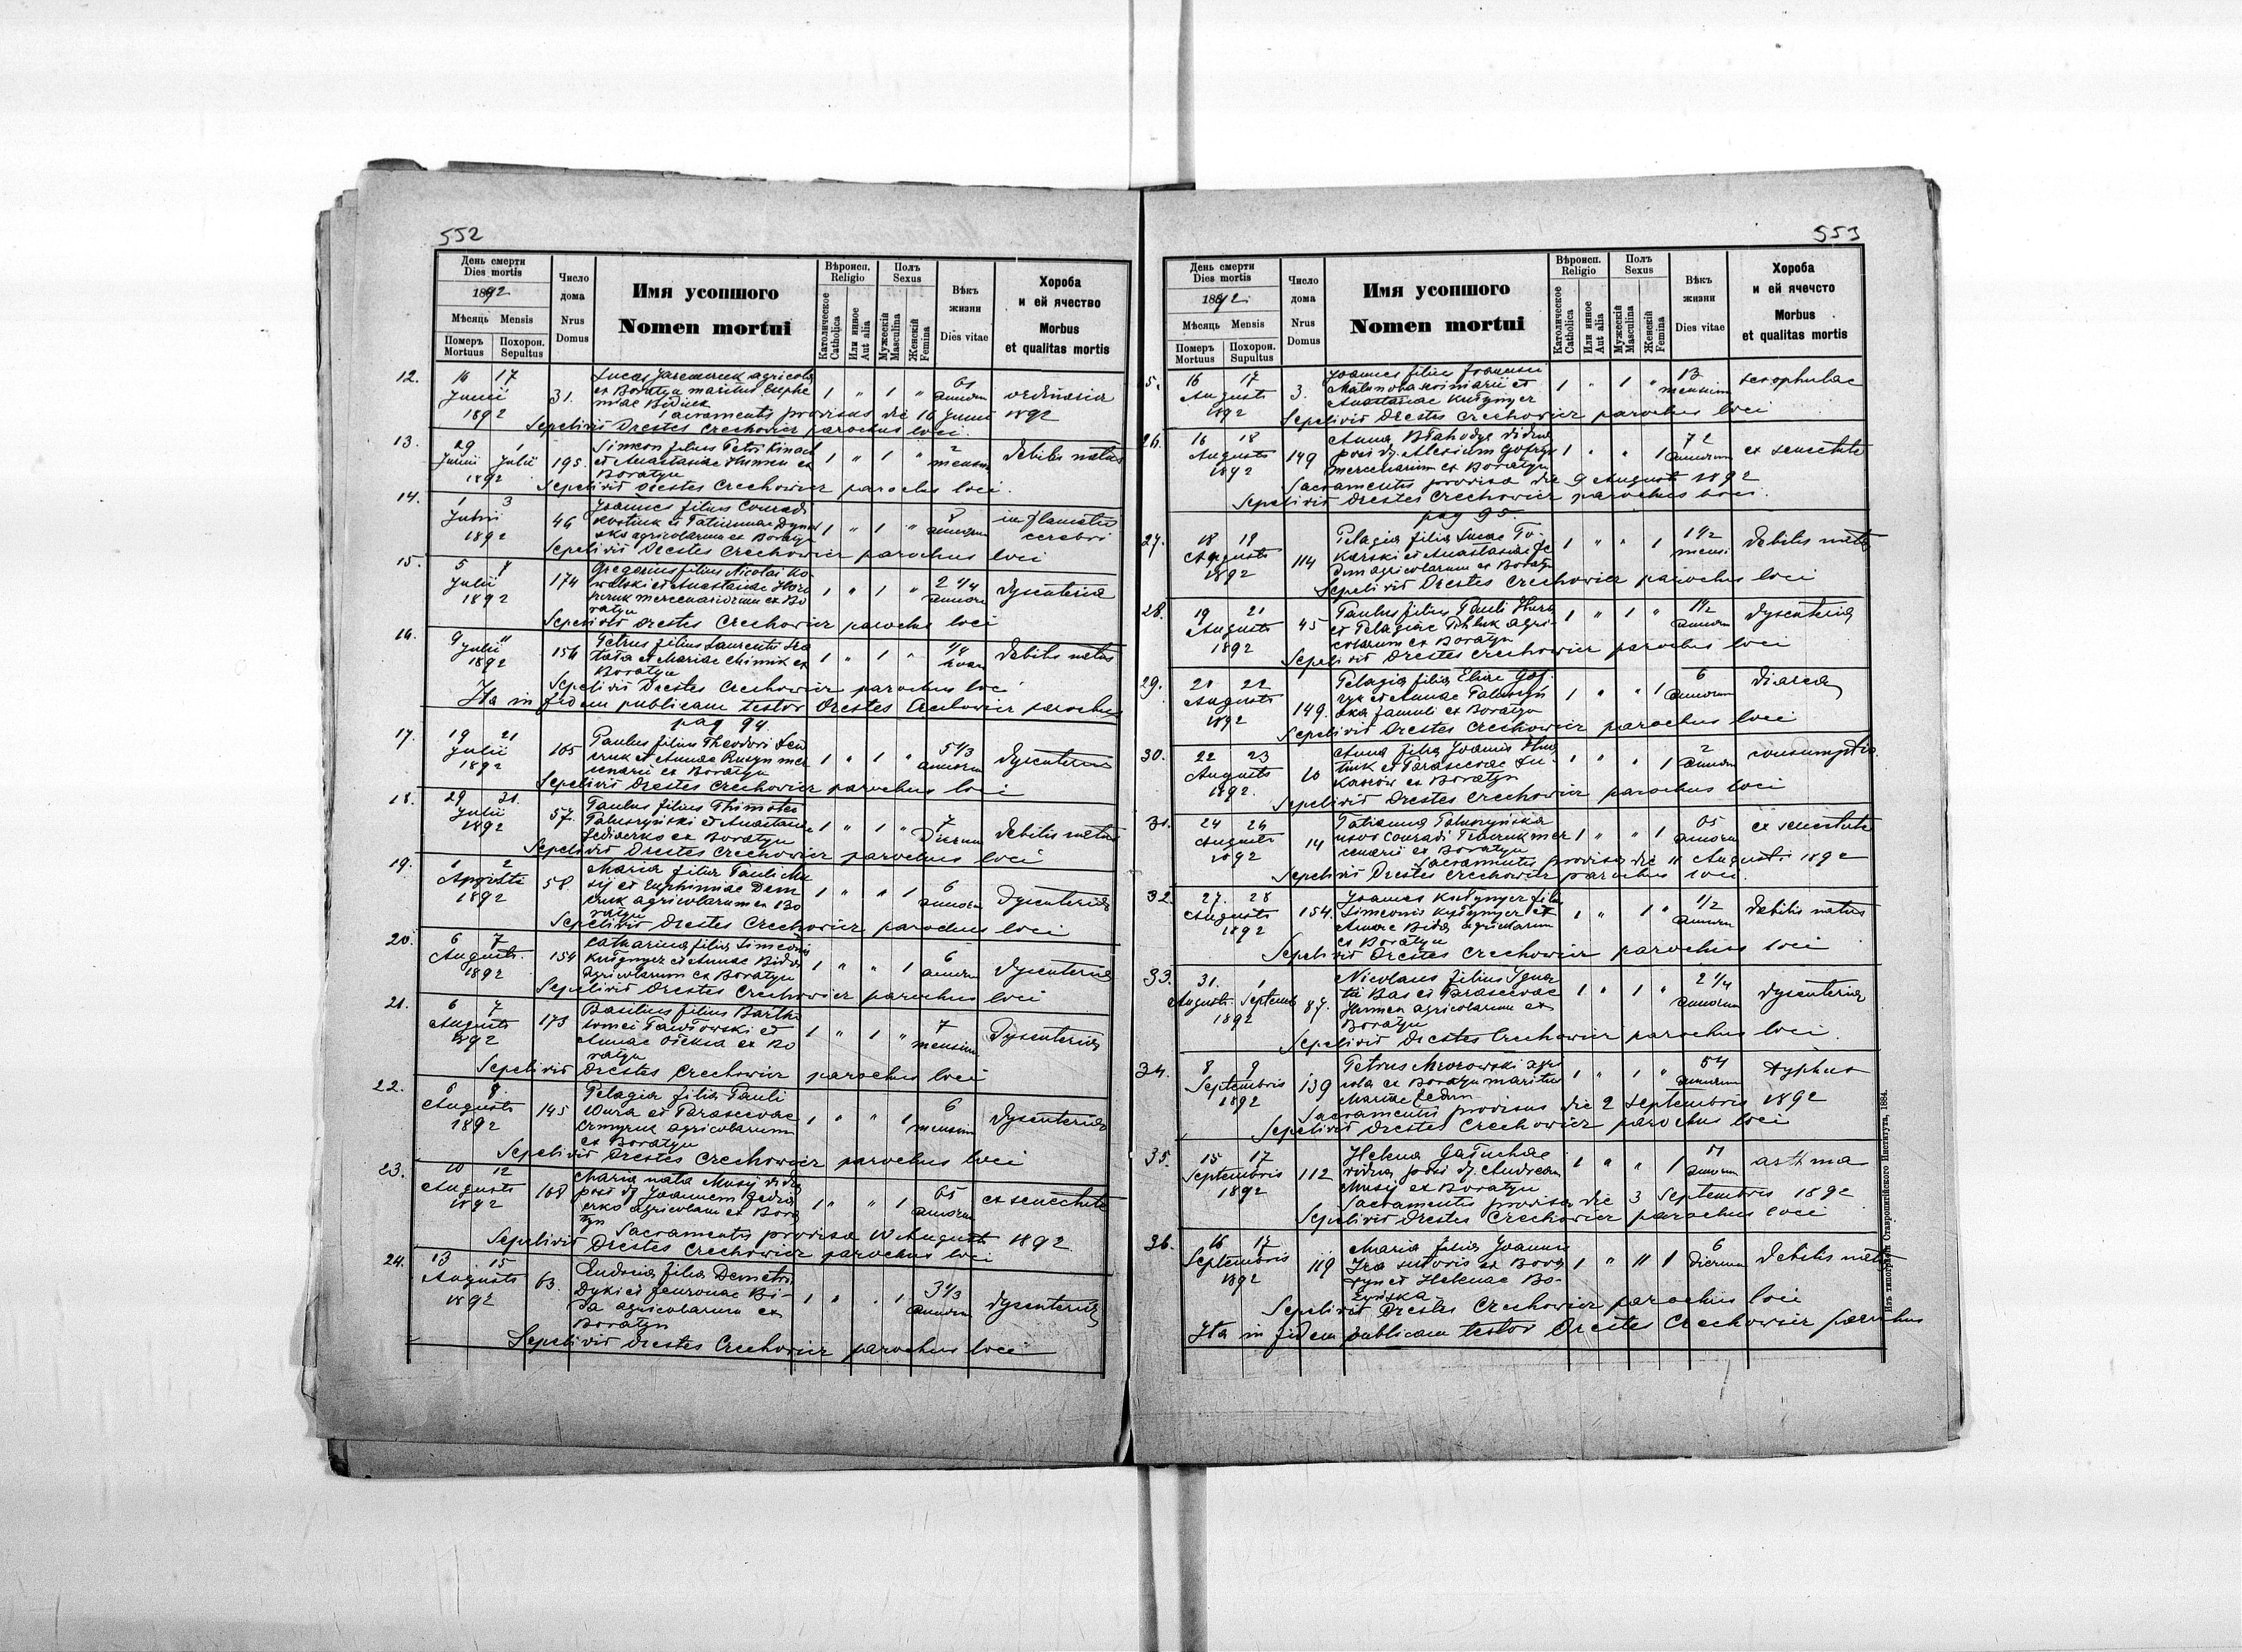 552
День смерти
Dies mortis
1892
Мѣсяць Mensis
Померъ
Mortuus
Похорон.
Sepultus
Число
дома
Nrus
Domus
Имя усопшого
Nomen mortui
Вѣроисп.
Religio
Католическое
Catholica
Или инное
Aut alia
Полъ
Sexus
Мужескій
Masculina
Женскій
Femina
Вѣкъ
жизни
Dies vitae
Хороба
и ей ячество
Morbus
et qualitas mortis
12. 16 17 Lucas agricola
Junii 31. ex Boratyn maritus Euphe 1 " 1 " 61 annorum ordinaria
1892 miae
Sacramentis provisus die 16 Junii 1892
Sepelivit Orestes Czechowicz parochus loci.
13. 29 1 Simeon filius Petri
Junii Julii 195. et Anastasiae Humen ex 1 " 1 " 2 mensium debilis natus
1892 Boratyn
Sepelivit Orestes Czechowicz parochus loci.
14. 1 3 Joannes filius Conradi
Julii 46 Kostiuk et Tatiannae 1 " 1 " 8 annorum inflamatio cerebri
1892 agricolarum ex Boratyn
Sepelivit Orestes Czechowicz parochus loci
15. 5 7 Gregorius filius Nicolai Ko-
Julii 174 walski et Anastasiae 1 " 1 " 2 1/4 annorum dysenteria
1892 mercenariorum ex Bo
ratyn
Sepelivit Orestes Czechowicz parochus loci
16. 9 11 Petrus filius Laurentii
Julii 156 et Mariae Chimik ex 1 " 1 " 1/8 debilis natus
1892 Boratyn
Sepelivit Orestes Czechowicz parochus loci
Ita in fidem publicam testor Orestes Czechowicz parochus
pag 94.
17. 19 21 Paulus filius Theodori
Julii 165 et Annae Rusyn mer 1 " 1 " 5 1/3 annorum dysenteria
1892 cenarii ex Boratyn
Sepelivit Orestes Czechowicz parochus loci
18. 29 31. Paulus filius Thimotei
Julii 57. Paluszyński et Anastasiae 1 " 1 " 7 dierum debilis natus
1892 ex Boratyn
Sepelivit Orestes Czechowicz parochus loci
19. 1 2 Maria filia Pauli Mu
Augusti 58. sij et Euphimiae Dem 1 " " 1 6 annorum dysenteria
1892 czuk agricolarum ex Bo
ratyn
Sepelivit Orestes Czechowicz parochus loci
20. 6 7 Catharina filia Simeonis
Augusti 154 Kułynycz et Annae Bida 1 " " 1 6 annorum dysenteria
1892 agricolarum ex Boratyn
Sepelivit Orestes Czechowicz parochus loci
21. 6 7 Basilius filius Bartho
Augusti 173 lomei Pawłowski et 1 " 1 " 7 mensium Dysenteria
1892 Annae Oleksa ex Bo
ratyn
Sepelivit Orestes Czechowicz parochus loci
22. 6 8. Pelagia filia Pauli
Augusti 145 Wura et Parascevae 1 " " 1 6 mensium dysenteria
1892 agricolarum
ex Boratyn
Sepelivit Orestes Czechowicz parochus loci
23. 10 12 Maria nata Musij vidua
Augusti 168 post df Joannem 1 " " 1 65 annorum ex senectute
1892 agricolam ex Bora
tyn
Sacramentis provisa 10 Augusti 1892
Sepelivit Orestes Czechowicz parochus loci
24. 13 15 Eudocia filia Demetri
Augusti 63. Dyki et Fevroniae Bi- 1 " " 1 3 1/3 annorum dysenteria
1892 da agricolarum ex
Boratyn
Sepelivit Orestes Czechowicz parochus loci
553
День смерти
Dies mortis
1892
Мѣсяць Mensis
Померъ
Mortuus
Похорон.
Supultus
Число
дома
Nrus
Domus
Имя усопшого
Nomen mortui
Вѣроисп.
Religio
Католическое
Catholica
Или инное
Aut alia
Полъ
Sexus
Мужескій
Masculina
Женскій
Femina
Вѣкъ
жизни
Dies vitae
Хороба
и ей ячечсто
Morbus
et qualitas mortis
5. 16 17 Joannes filius Francisci
Augusti 3. et 1 " 1 " 13 mensium scrophulae
1892 Anastasiae Kułynycz
Sepelivit Orestes Czechowicz parochus loci
26. 16 18 Anna Błahodyr vidua
Augusti 149 post df. Alexium 1 " " 1 72 annorum ex senectute
1892 mercenarium ex Boratyn
Sacramentis provisa die 9 Augusti 1892
Sepelivit Orestes Czechowicz parochus loci.
pag 95.
27. 18 19 Pelagia filia Lucae To-
Augusti 114 karski et Anastasiae Fe 1 " " 1 1 1/2 mensi debilis nata
1892 dun agricolarum ex Boratyn
Sepelivit Orestes Czechowicz parochus loci
28. 19 21 Paulus filius Pauli
Augusti 45 et Pelagiae agri- 1 " 1 " 1 1/2 annorum dysenteria
1892 colarum ex Boratyn
Sepelivit Orestes Czechowicz parochus loci
29. 21 22 Pelagia filia Eliae
Augusti 149. et Annae Paluszyń 1 " " 1 6 annorum diarea
1892 ska famuli ex Boratyn
Sepelivit Orestes Czechowicz parochus loci
30. 22 23 Anna filia Joannis
Augusti 10 et Parascevae Łu- 1 " " 1 2 annorum consumptio
1892. kaszów ex Boratyn
Sepelivit Orestes Czechowicz parochus loci
31. 24 26 Tatianna Paluszyńska
Augusti 14 uxor Conradi mer 1 " " 1 65 annorum ex senectute
1892 cenarii ex Boratyn
Sacramentis provisa die 11 Augusti 1892
Sepelivit Orestes Czechowicz parochus loci.
32. 27. 28 Joannes Kułynycz filius
Augusti 154. Simeonis Kułynycz et 1 " 1 " 1/2 annorum debilis natus
1892 Annae Bida agricolarum
ex Boratyn
Sepelivit Orestes Czechowicz parochus loci
33. 31. 1 Nicolaus filius Igna
Augusti Septemb 87. tii Bas et Parascevae 1 " 1 " 2 1/4 annorum dysenteria
1892 Humen agricolarum ex
Boratyn
Sepelivit Orestes Czechowicz parochus loci.
34. 8 9 Petrus Mrozowski agri
Septembris 139 cola ex Boratyn maritus 1 " 1 " 54 annorum typhus
1892 Mariae Fedun
Sacramentis provisus die 2 Septembris 1892
Sepelivit Orestes Czechowicz parochus loci
35. 15 17 Helena
Septembris 112 vidua post df. Andream 1 " " 1 51 annorum asthma
1892 Musij ex Boratyn
Sacramentis provisa die 3 Septembris 1892
Sepelivit Orestes Czechowicz parochus loci
36. 16 17 Maria filia Joannis
Septembris 119 sutoris ex Bora 1 " " 1 6 dierum debilis nata
1892 tyn et Helenae Bo-
Sepelivit Orestes Czechowicz parochus loci
Ita in fidem publicam testor Orestes Czechowicz parochus
Изъ типографіи Ставропигійского Института, 1884.